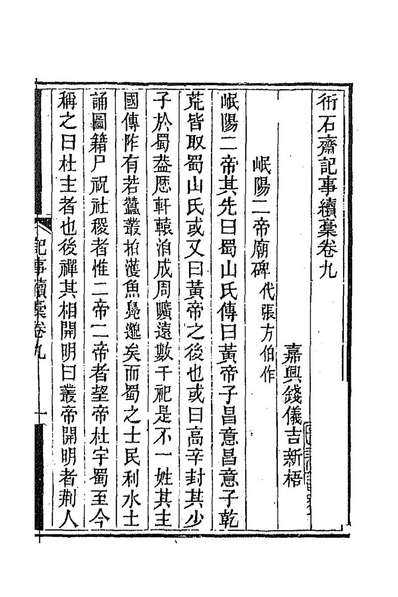 衎石齋記事續藁卷九
嘉興錢儀吉新梧
岷陽二帝廟碑代張方伯作
岷陽二帝其先曰蜀山氏傳曰黃帝子昌意昌意子乾
荒皆取蜀山氏或又曰黃帝之後也或曰高辛封其少
子於蜀葢歴軒轅洎成周曠遠數千祀是不一姓其主
國傳阼有若蠶叢柏濩魚鳧邈矣而蜀之士民利水土
誦圖籍尸祝社稷者惟二帝二帝者望帝杜宇蜀至今
稱之曰杜主者也後禪其相開明曰叢帝開明者荆人
記事續藁卷九
一